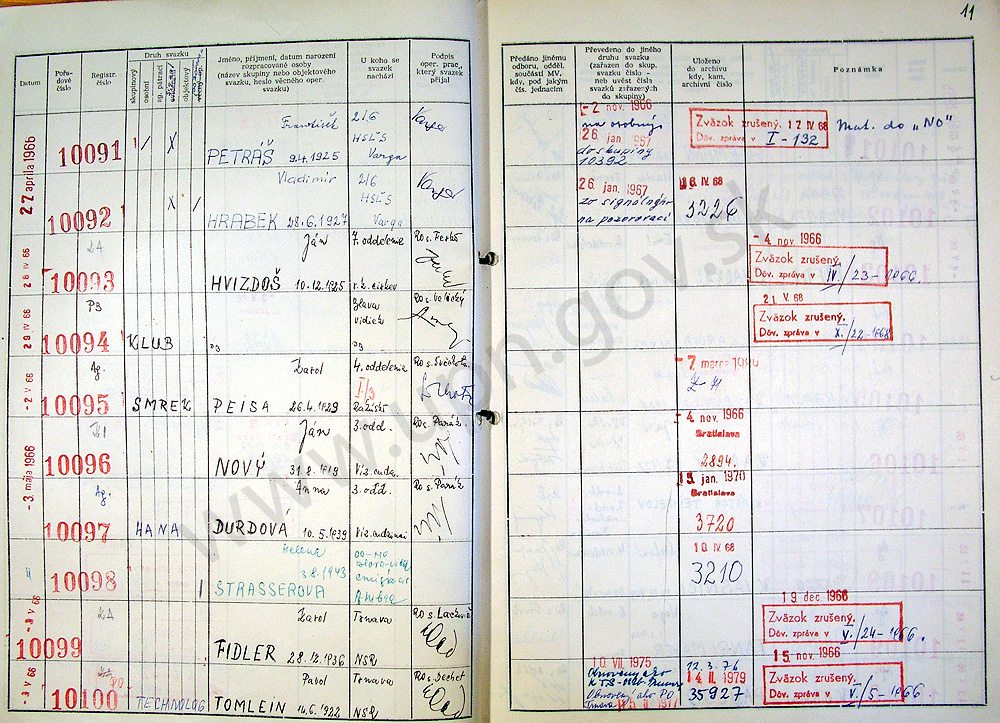 11
Datum
Pořadové číslo
Registr. číslo
Druh svazku
skupinový
osobní
objektový
Jméno, příjmení, datum narození rozpracované osoby
(název skupiny nebo objektového svazku, heslo věcného oper. svazku)
U koho se svazek nachází
Podpis oper. prac., který svazek přijal
Předáno jinému odboru, odděl. součásti MV. kdy, pod jakým čís. jednacím
Převedeno do jiného druhu svazku (zařazen do skup. svazku číslo - neb uvést čísla svazků zařazených do skupiny)
Uloženo do archivu kdy, kam, archivní číslo
Poznámka
27 apríla 1966
10091
František
PETRÁŠ 9.4.1925
2/6
HSLŠ
Varga
-2 nov. 1966
na osobný
26 jan. 1967
do skupiny
10392
Zväzok zrušený. 17 IV 68
Dôv. zpráva v I-132
Mat. do „NO"
10092
Vladimír
HRABEK 28.6.1927
2/6
HSLŠ
Varga
26 jan. 1967
zo signálnych
na pozorovací
16 IV. 68
3226
28 IV 66
10093
Ján
HVIZDOŠ 10.12.1925
7. oddelenie
r.k. cirkev
-4 nov. 1966
Zväzok zrušený.
Dôv. zpráva v IV/23-1966.
29 IV 66
10094
KLUB
Hlava
vidiek
21 V. 68
Zväzok zrušený.
Dôv. zpráva v X./22-1968
-2 V 66
Ag.
10095
SMREK
Karol
PEISA 26.4.1929
4. oddelenie
I/3
-7 marca 1980
-3. mája 1966
10096
Ján
NOVÝ 31.8.1919
3. odd.
-4 nov. 1966
Bratislava
2894.
Ag.
10097
HANA
Anna
ĎURDOVÁ 10.5.1939
3. odd.
13 jan. 1970
Bratislava
3720
10098
Helena
3.8.1943
STRASSEROVA
10 IV. 68
3210
-3 V 66
10099
Karol
FIDLER 28.12.1936
Trnava
NSR
19 dec. 1966
Zväzok zrušený.
Dôv. zpráva v V./24-1966.
-3 V 66
PO
10100
TECHNOLOG
Pavol
TOMLEIN 14.6.1922
Trnava
NSR
10 VII. 1975
Obnovený ako
Obnovený ako PO
Trnava
22.3.76
14 II 1979
35927
15 nov. 1966
Zväzok zrušený.
Dôv. zpráva v V./5-1966
www.upn.gov.sk